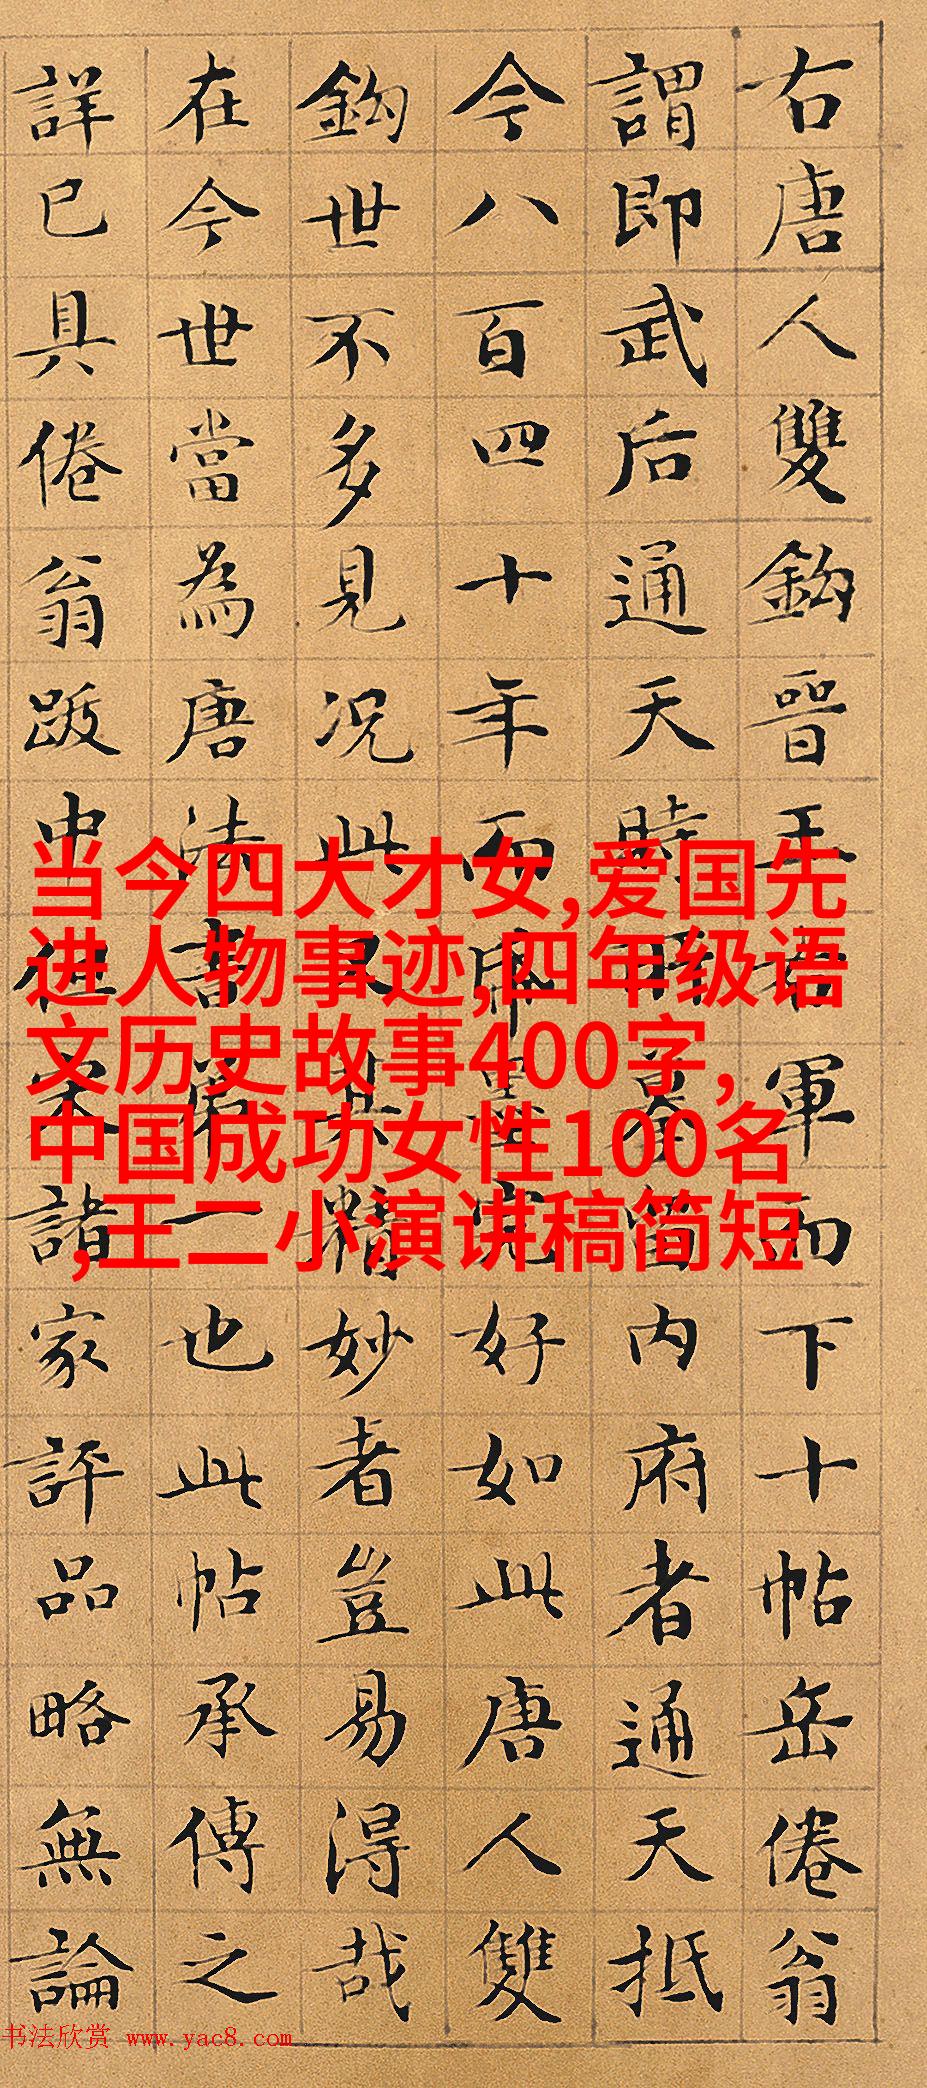 右唐人雙鈎晉王右軍而下十帖岳倦翁
謂即武后通天時所摹留内府者通天抵
今八百四十年而帋墨完好如此唐人雙
鈎世不多見况此又其精妙者豈易得哉
在今世當為唐法書第一也此帖承傳之
詳已具倦翁跋中但宋諸家評品略無論
当今四大才女,爱国先
进人物事迹,四年级语
文历史故事400字,
中国成功女性100名
,王二小演讲稿简短
书法欣赏 www.yac8.com